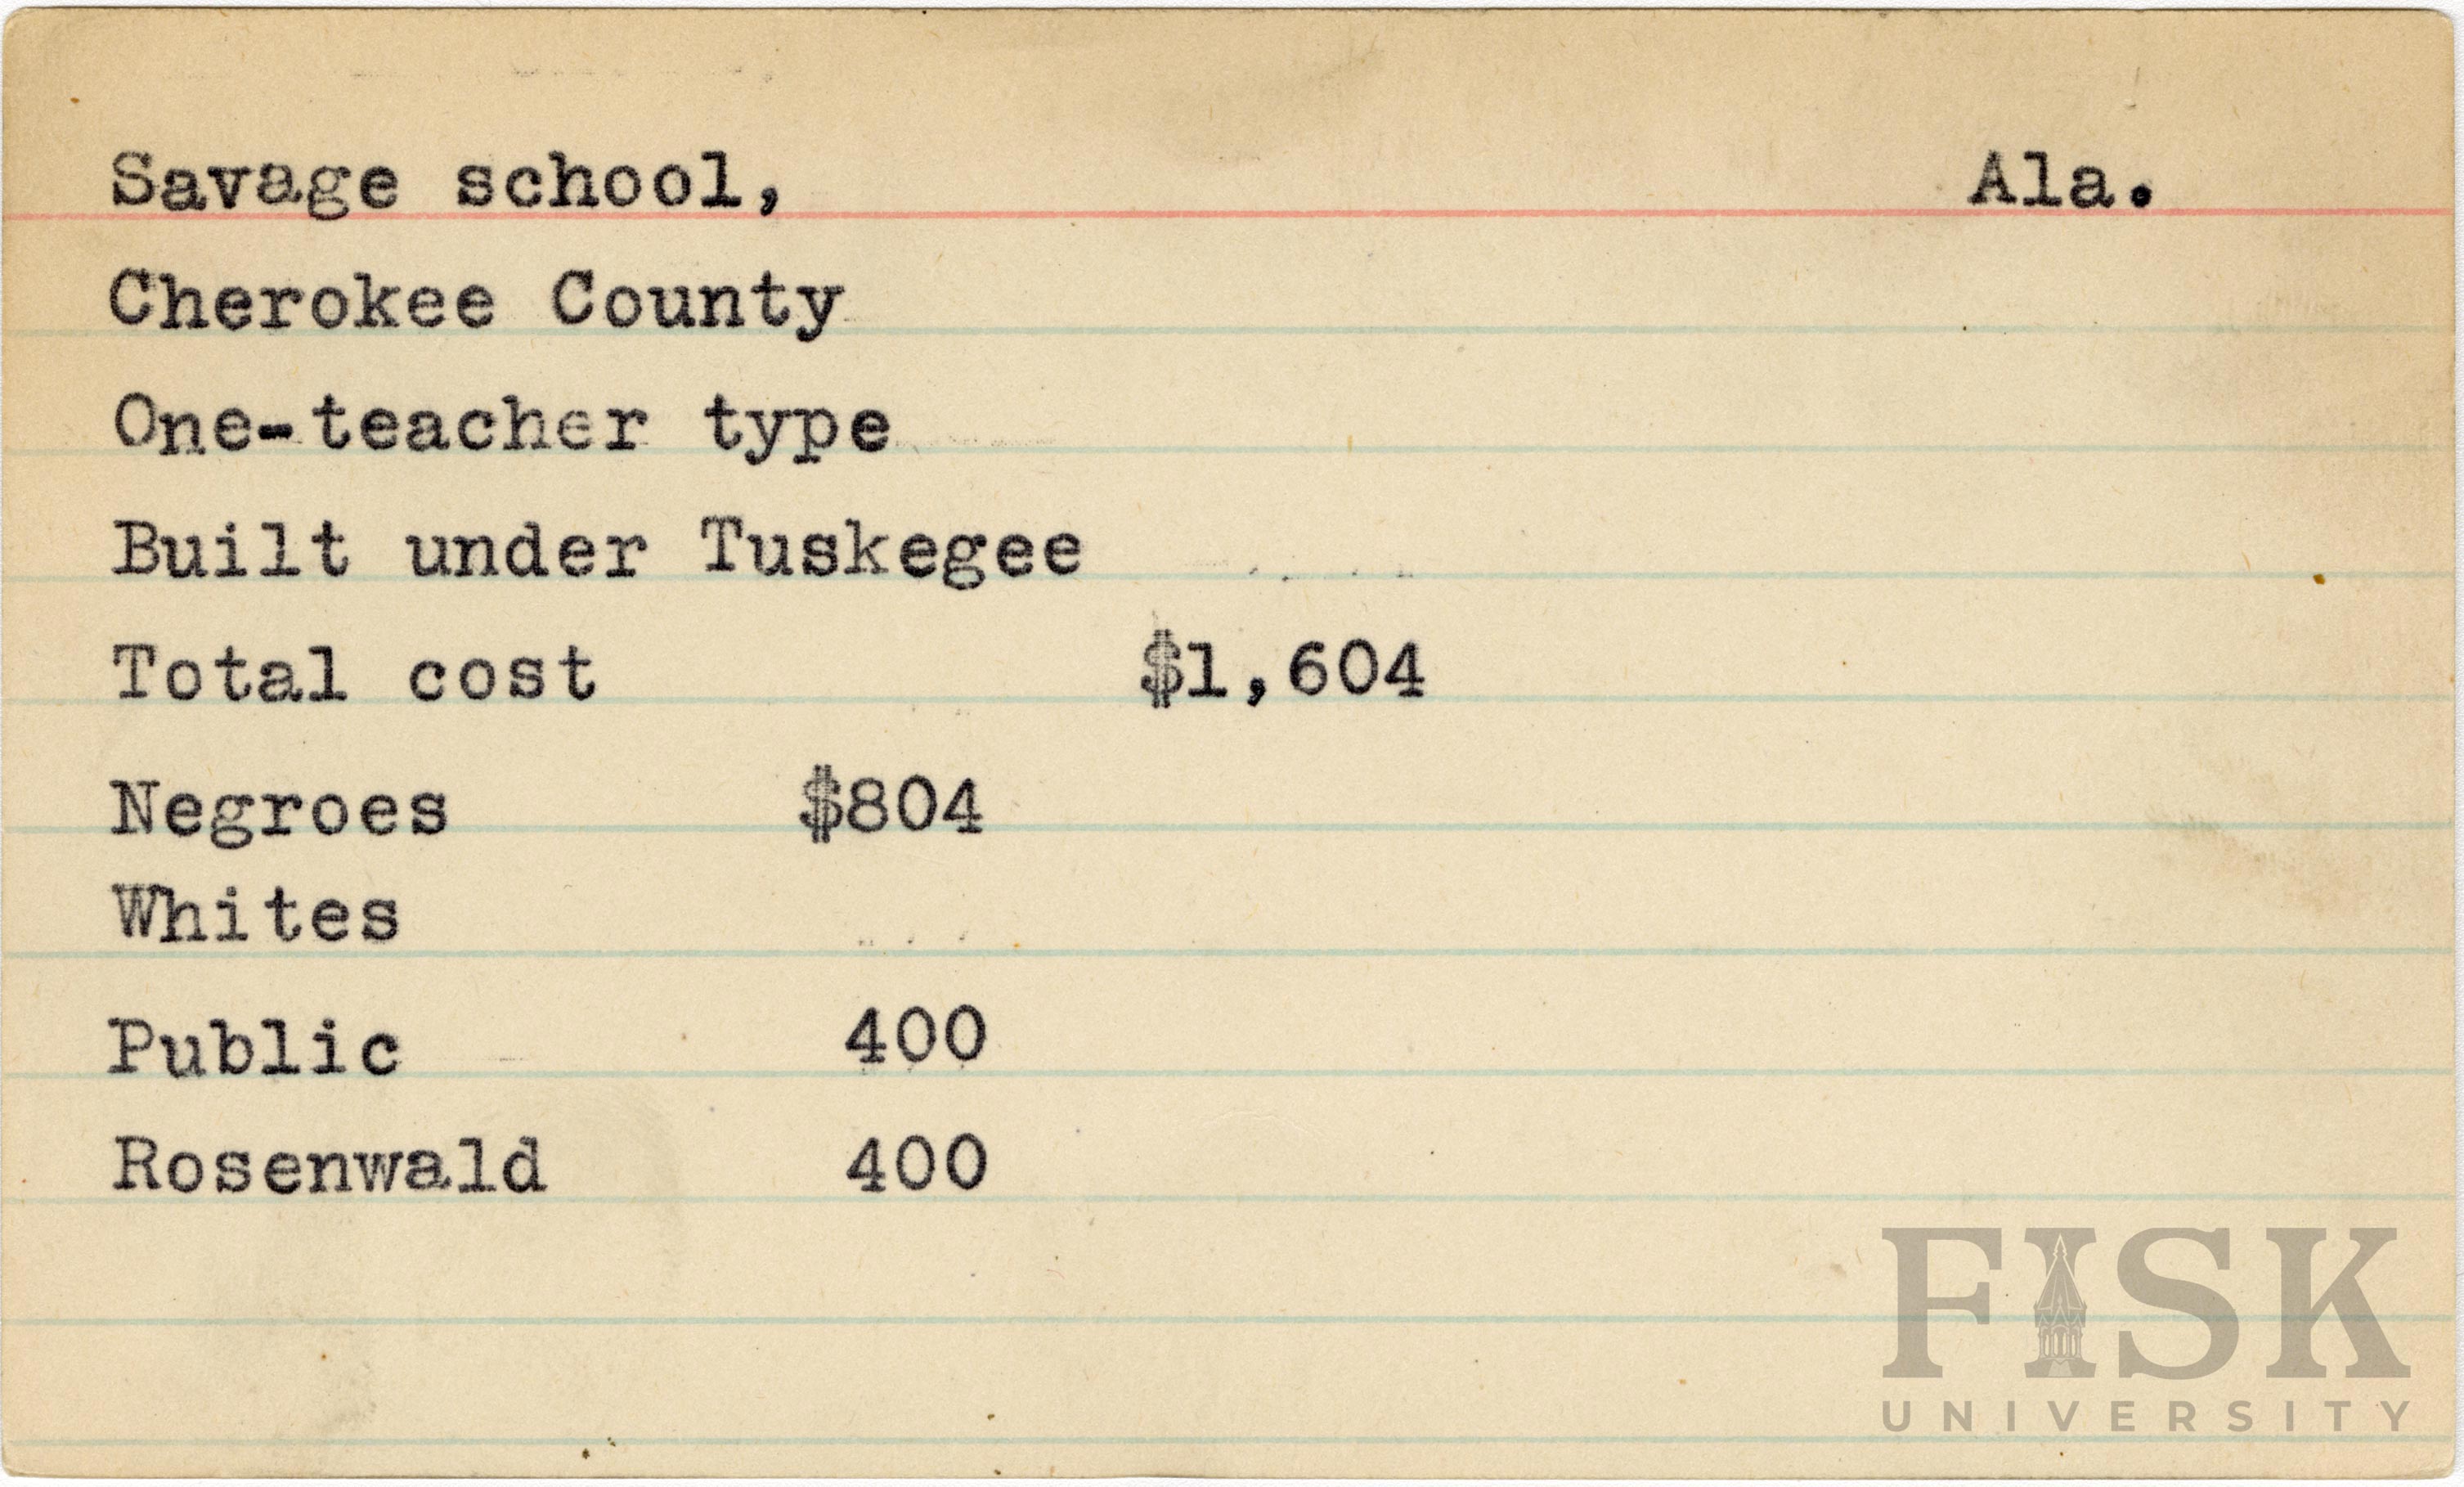 Savage school, Ala.
Cherokee County
One-teacher type
Built under Tuskegee
Total cost $1,604
Negroes $804
Whites
Public 400
Rosenwald 400
FISK
UNIVERSITY